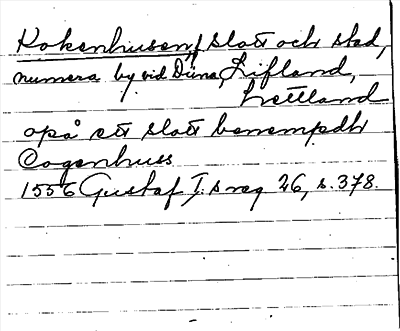 Kokenhusen, slott och stad,
numera by vid Düna, Lifland,
Lettland
opå ett slott benempdh
Cogenhuss
1556 Gustaf I:s reg 26, s. 378.